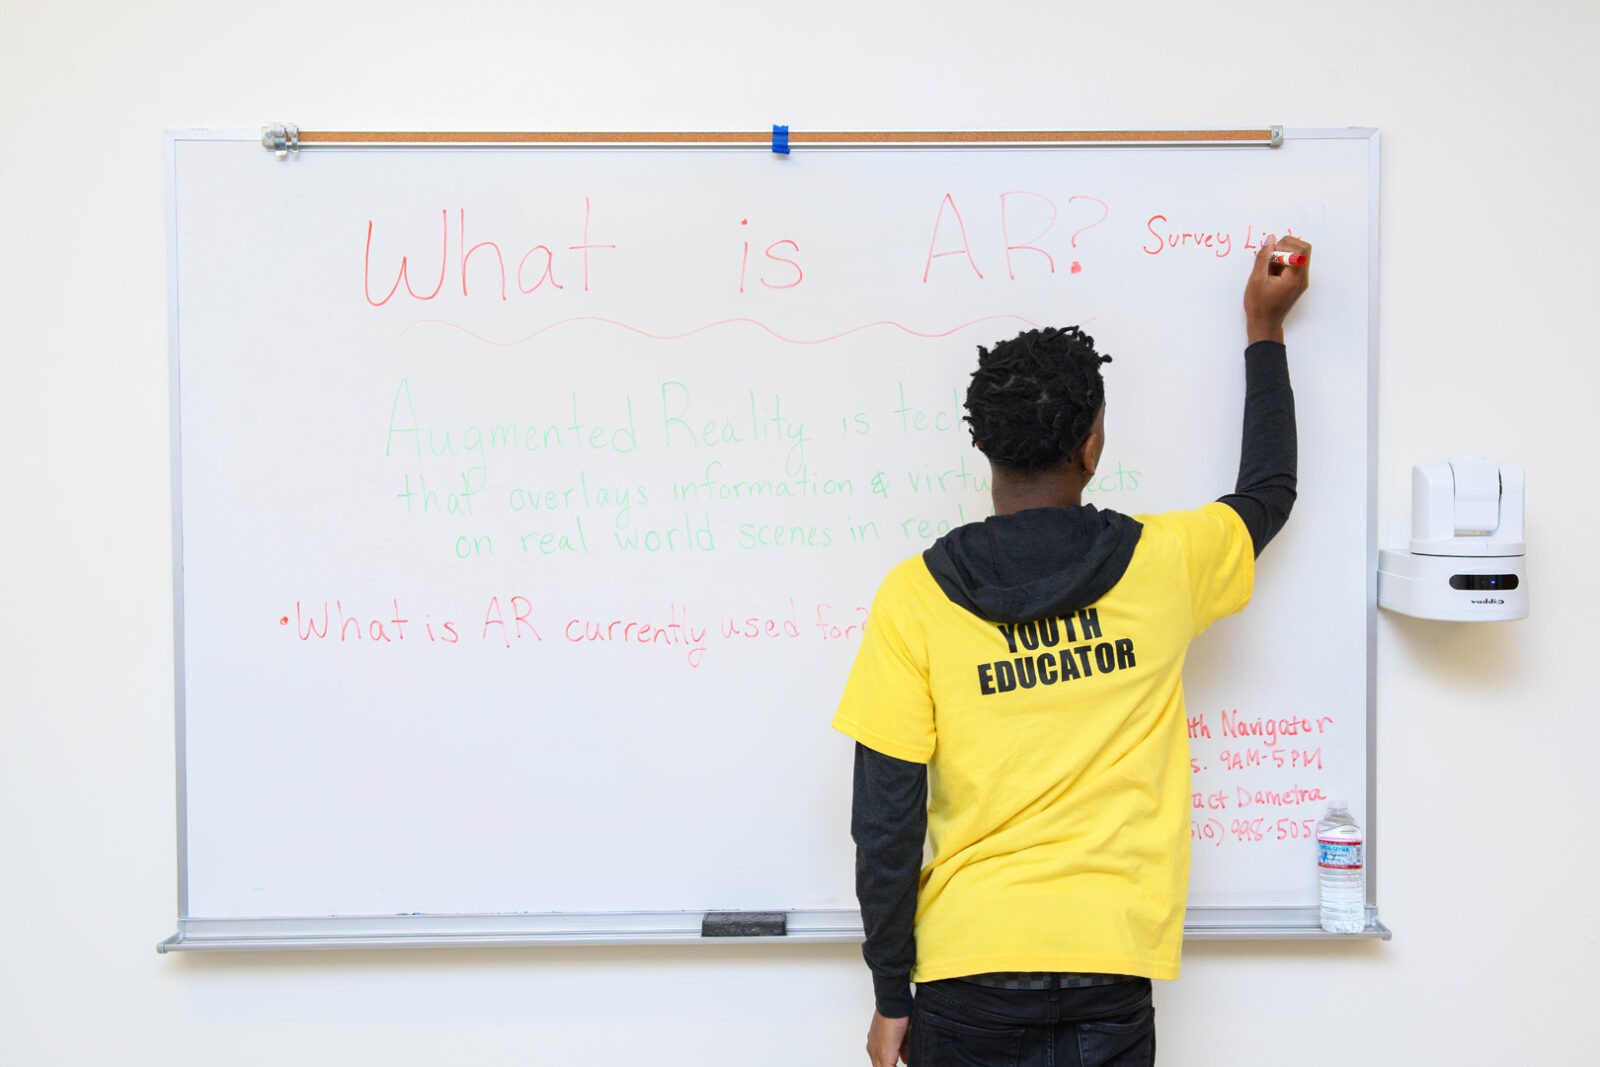 What is AR?
Survey
Augmented Reality is
that overlays information &
on real world scenes in real
• What is AR currently used for?
YOUTH
EDUCATOR
Navigator
9AM-5PM
Dametra
998-505